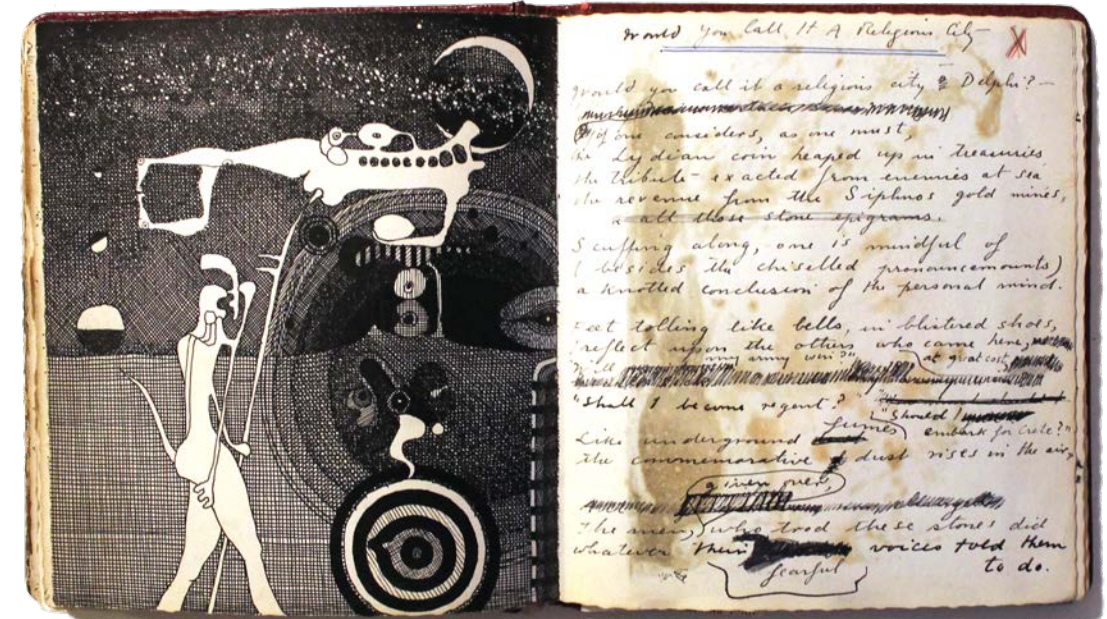 Would You Call It A Religious City
X
Would you call it a religious city, Delphi? —
If one considers, as one must,
the Lydian coin heaped up in treasuries
the tribute exacted from enemies at sea
the revenue from the Siphnos gold mines,
& all those stone epigrams.
Scuffing along, one is mindful of
(besides the chiselled pronouncements)
a knotted conclusion of the personal mind.
Feet tolling like bells, in blistered shoes,
I reflect upon the others who came here,
at great cost,
Will my army win?"
"Shall I become regent?
"Should I
embark for Crete?")
Like underground fumes
the commemorative dust rises in the air,
given over,
The men, who trod these stones did
whatever their voices told them
fearful
to do.